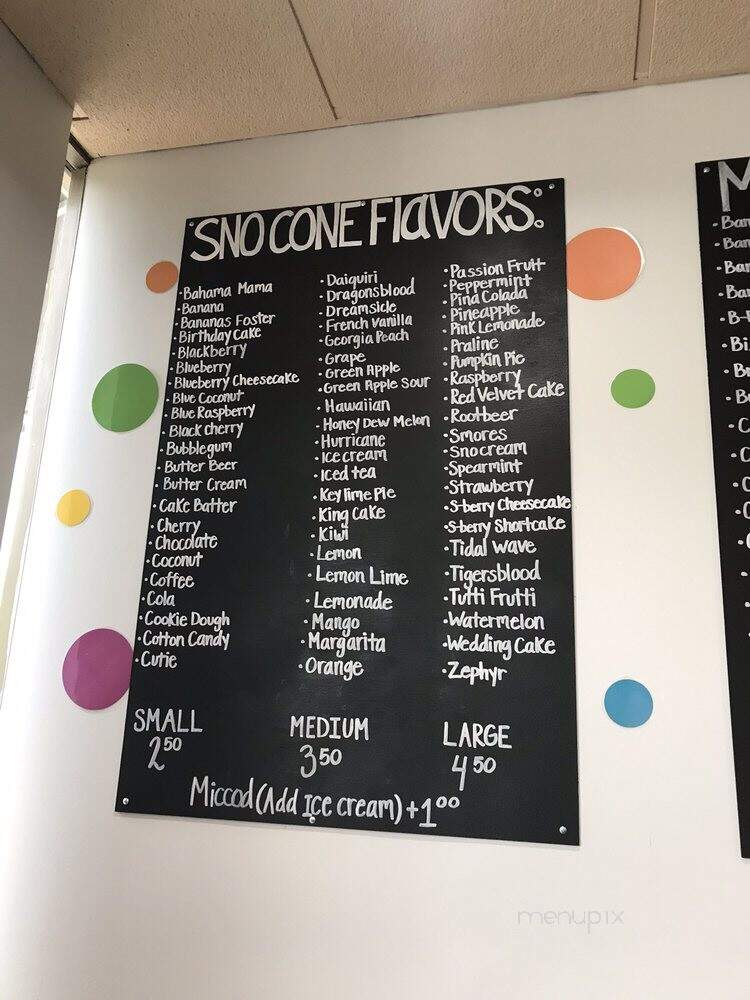 SNO CONE FlavORS:
• Bahama Mama
• Banana
• Bananas Foster
• Birthday Cake
• Blackberry
• Blueberry
• Blueberry Cheesecake
• Blue Coconut
• Blue Raspberry
• Black cherry
• Bubblegum
• Butter Beer
• Butter Cream
• Cake Batter
• Cherry
• Chocolate
• Coconut
• Coffee
• Cola
• Cookie Dough
• Cotton Candy
• Cutie
• Daiquiri
• Dragonsblood
• Dreamsicle
• French vanilla
• Georgia Peach
• Grape
• Green Apple
• Green Apple Sour
• Hawaiian
• Honey Dew Melon
• Hurricane
• Ice cream
• Iced tea
• Key lime Pie
• King Cake
• Kiwi
• Lemon
• Lemon Lime
• Lemonade
• Mango
• Margarita
• Orange
• Passion Fruit
• Peppermint
• Pina Colada
• Pineapple
• Pink Lemonade
• Praline
• Pumpkin Pie
• Raspberry
• Red Velvet Cake
• Rootbeer
• Smores
• Snocream
• Spearmint
• Strawberry
• S-berry Cheesecake
• S-berry Shortcake
• Tidal wave
• Tigersblood
• Tutti Frutti
• Watermelon
• Wedding Cake
• Zephyr
SMALL
2 50
MEDIUM
3 50
LARGE
4 50
Miccod (Add Ice cream) + 1 00
menupix